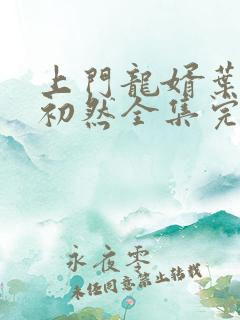 上門龍婿葉
初然全集完
永夜零
未經同意禁止轉載